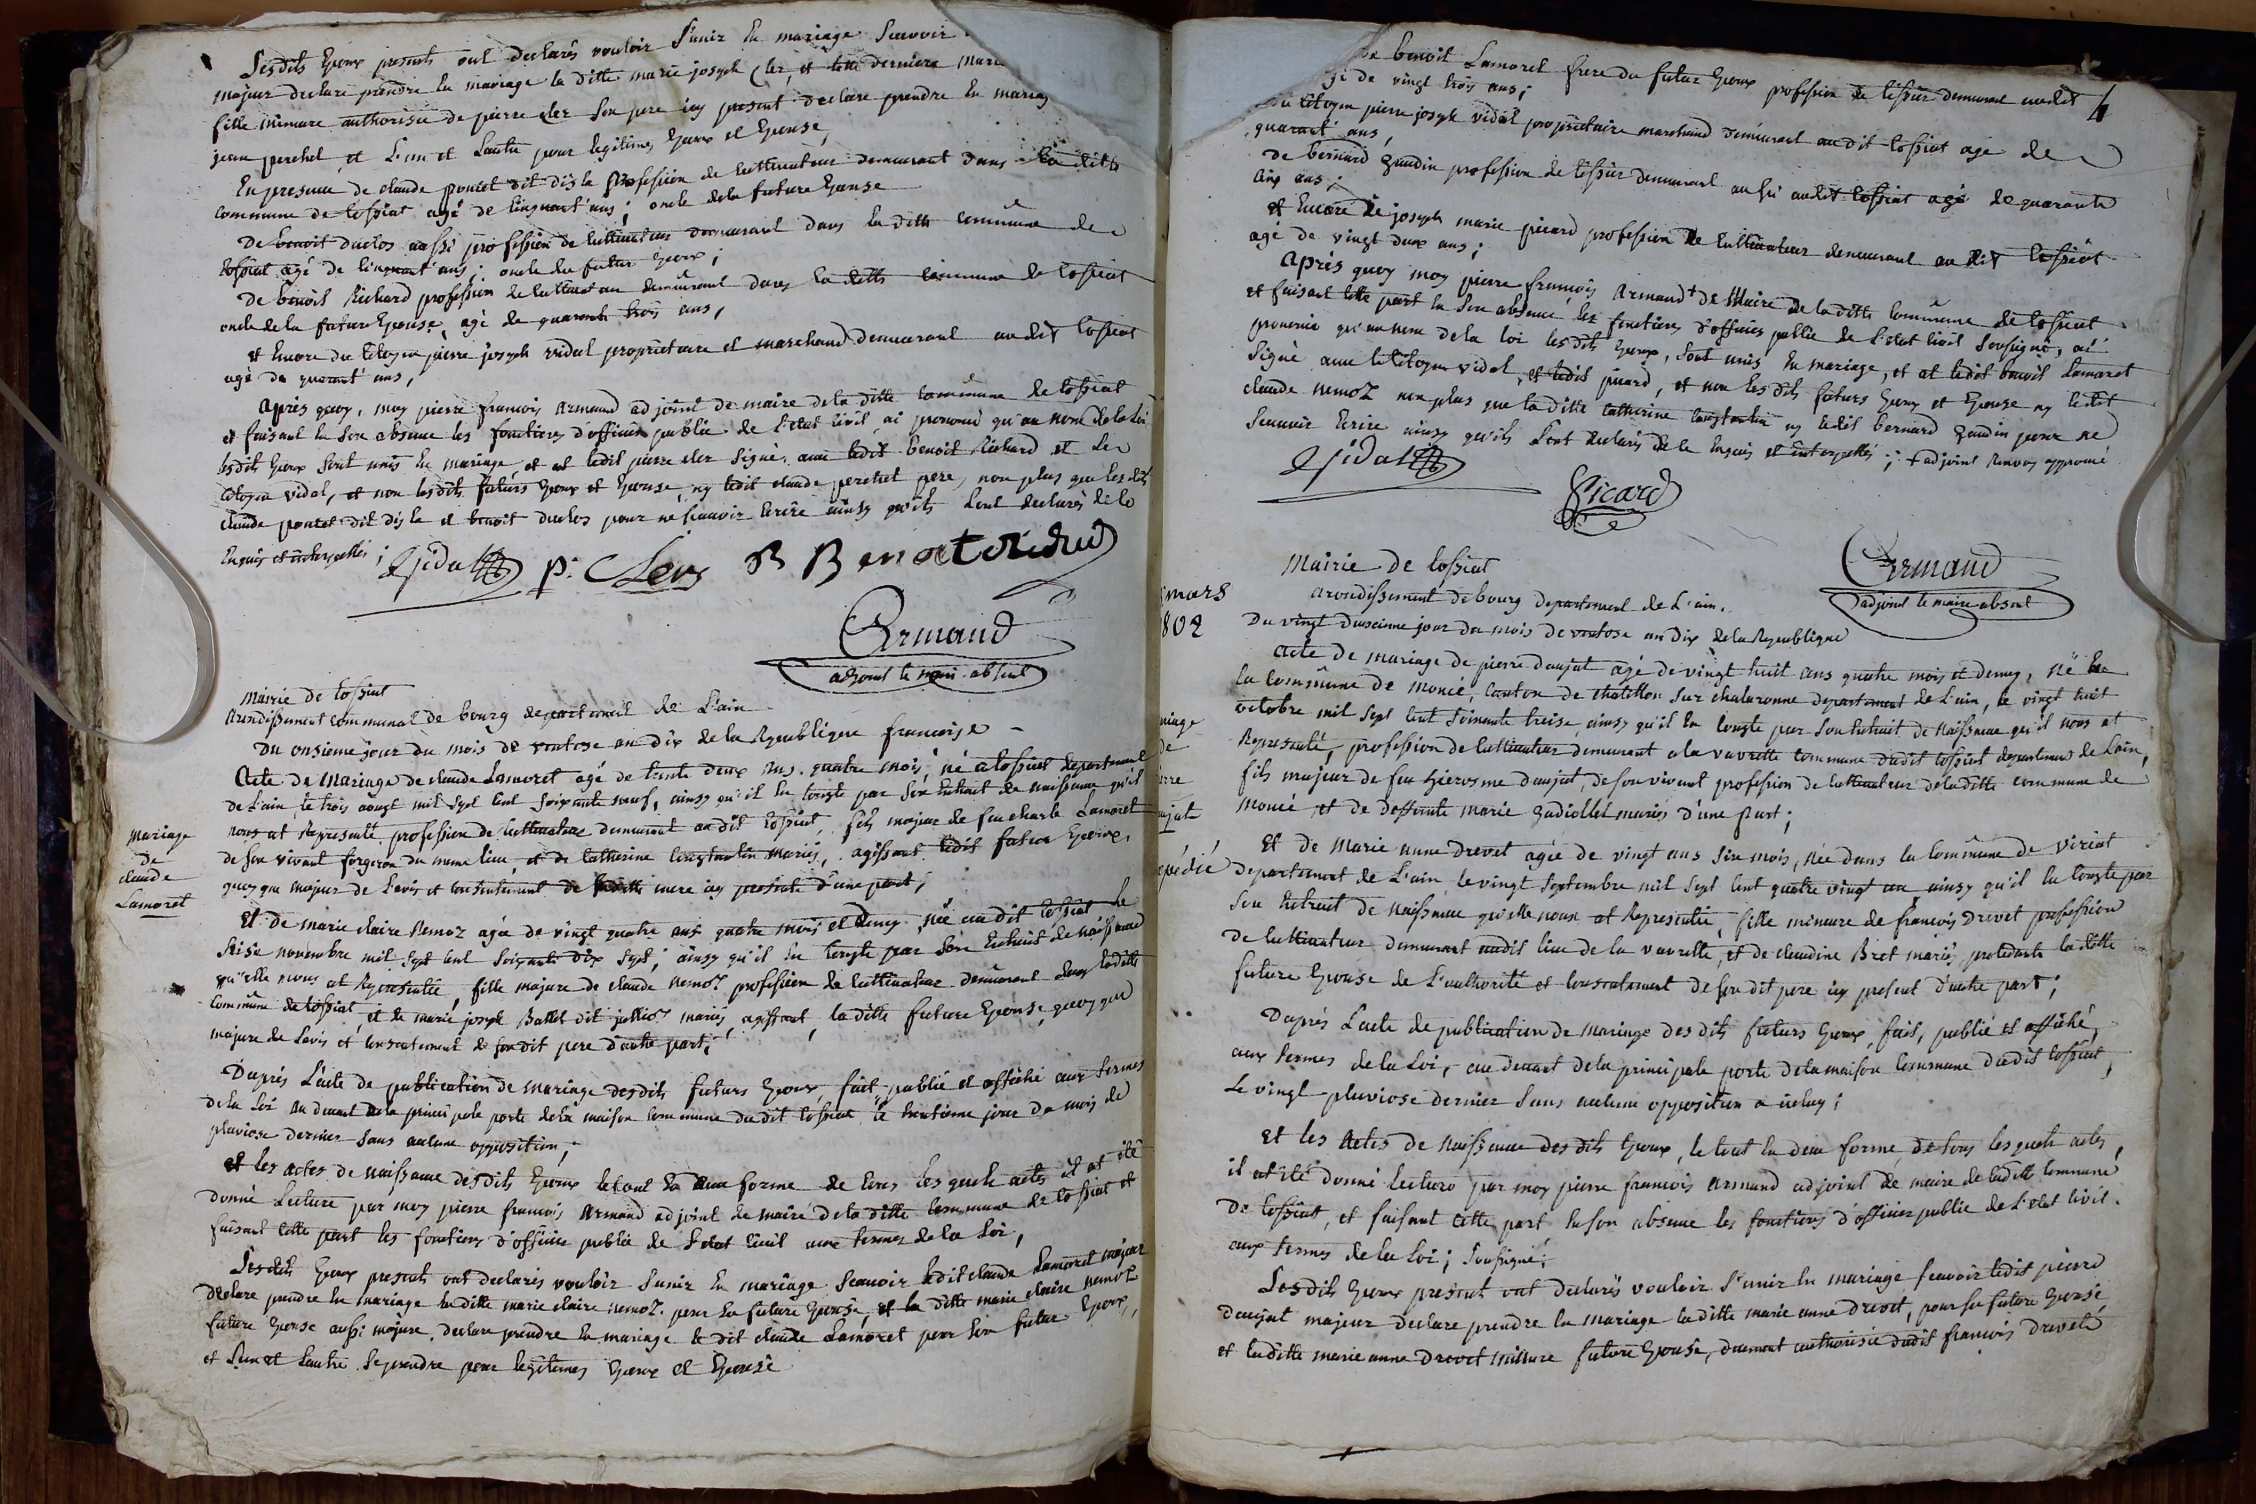 Lesdits Epoux presents ont declarés vouloir s'unir en mariage Scavoir
majeur declare prendre en mariage la ditte marie joseph Cler, et cette derniere
fille mineure authorisée de pierre cler son pere icy present declare prendre en mariag
jean perchet et L'un et Lautre pour legitimes Epoux et Epouse,
En presence de claude poncet dit disle profession de cultivateur demeurant dans la ditte
commune de tossiat agé de cinquant ans; oncle de la future Epouse
De benoit duclos aussi profession de cultivateur demeurant dans la ditte commune de
tossiat agé de cinquant ans; oncle du futur Epoux;
De benoit Richard profession de cultivateur demeurant dans la ditte commune de tossiat
oncle de la future Epouse, agé de quarante trois ans,
et Encore du Citoyen pierre joseph vidal proprietaire et marchand demeurant au dit tossiat
agé de quarant ans,
Aprés quoy, moy pierre francois Armand adjoint de maire de la ditte commune de tossiat
et faisant en son absence les fonctions d'officier public de L'etat Civil, ai prononcé qu'au nom de la Loi
lesdits Epoux sont unis en mariage et at ledit pierre cler signé, avec ledit benoit Richard et le
Citoyen vidal, et non lesdits futurs Epoux et Epouse, ny ledit claude perchet pere, non plus que lesdits
claude poncet dit disle et benoit duclos pour ne scavoir Ecrire ainsy qu'ils Lont declarés de ce
Enquis et interpellés;
Vidal p. Clerc B Benoit
Armand
adjoint le maire absent
Mairie de tossiat
Arondissement Communal de bourg departement de L'ain
Du onsieme jour du mois de ventose an dix de la Republique francoise
Mariage
de
claude
Lamoret
Acte de Mariage de claude Lamoret agé de trente deux Ans quatre mois, né a tossiat departement
de L'ain, le trois aougt mil sept cent soixante neuf, ainsy qu'il en conste par son Extrait de naissance qu'il
nous at Representé profession de cultivateur demeurant audit tossiat, fils majeur de feu charle Lamoret
de son vivant forgeron du meme lieu et de Catherine Constantin Mariés, agissant ledit futur Epoux,
quoy que majeur de Lavis et consentement de sa ditte mere icy presente d'une part,
Et de marie claire Nemoz agée de vingt quatre ans quatre mois et demy née au dit tossiat le
seise novembre mil sept cent soixante dix sept; ainsy qu'il en conste par son Extrait de Naissance
qu'elle nous at Representée, fille majeure de claude nemoz profession de cultivateur demeurant dans la ditte
commune de tossiat, et de marie joseph Ballet dit mariés, agissant, la ditte future Epouse quoy que
majeure de Lavis et consentement de son dit pere d'autre part;
Daprés L'acte de publication de mariage desdits futurs Epoux, fait, publié et affiché aux termes
de la Loi au devant de la principale porte de la maison commune du dit tossiat le trentième jour du mois de
pluviose dernier sans aulcune opposition;
et les actes de naissance desdits Epoux le tout En due forme de tous les quels actes il at été
donné Lecture par moy pierre francois Armand adjoint de maire de la ditte commune de tossiat et
faisant cette part les fonctions d'officier public de L'etat Civil aux termes de la Loi,
Lesdits Epoux presents ont declarés vouloir sunir En mariage scavoir ledit claude Lamoret majeur
declare prendre En mariage la ditte marie claire nemoz pour sa future Epouse, et la ditte marie claire nemoz
future Epouse aussi majeure declare prendre En mariage le dit claude Lamoret pour son futur Epoux,
et Lun et Lautre se prendre pour legitimes Epoux et Epouse
4
de benoit Lamoret frere du futur Epoux profession de tissier demeurant audit
gé de vingt trois ans;
du Citoyen pierre joseph vidal proprietaire marchand demeurant au dit tossiat agé de
quarant ans,
De bernard gaudin profession de tissier demeurant aussi audit tossiat agé de quarante
cinq ans;
et Encore de joseph marie picard profession de cultivateur demeurant au dit tossiat
agé de vingt deux ans;
Aprés quoy moy pierre francois Armand + de Maire de la ditte commune de tossiat
et faisant cette part en son absence les fonctions d'officier public de L'etat Civil soussigné, ai
prononcé qu'au nom de la loi lesdits Epoux, sont unis En mariage, et at ledit benoit Lamoret
signé avec le Citoyen vidal, et ledit picard, et non lesdits futurs Epoux et Epouse ny ledit
claude nemoz non plus que la ditte Catherine Constantin ny ledit bernard gaudin pour ne
scavoir Ecrire ainsy qu'ils Lont declarés de ce Enquis et interpellés; + adjoint Renvoy approuvé
Vidal
Picard
Armand
adjoint le maire absent
Mairie de tossiat
Arondissement de bourg departement de L'ain.
mars
802
Du vingt deuxieme jour du mois de ventose an dix de la Republique
riage
de
ierre
aujat
xpédié
Acte de mariage de pierre daujat agé de vingt huit ans quatre mois et demy, né En
la commune de Monié, Canton de chatillon sur chalaronne departement de L'ain, le vingt huit
octobre mil sept cent soixante treise, ainsy qu'il En conste par son Extrait de Naissance qu'il nous at
Representé, profession de cultivateur demeurant a la vavrette commune dudit tossiat departement de L'ain,
fils majeur de feu hierosme daujat, de son vivant profession de cultivateur de la ditte commune de
Monié et de deffunte marie gadiollet mariés d'une Part;
Et de Marie anne Drevet agée de vingt ans six mois, née dans la commune de viriat
departement de L'ain, le vingt septembre mil sept cent quatre vingt un ainsy qu'il En conste par
son Extrait de Naissance qu'elle nous at Representée, fille mineure de francois Drevet profession
de cultivateur demeurant audit lieu de la vavrette, et de claudine Bret mariés, procedante la ditte
future Epouse de L'authorité et consentement de son dit pere icy present d'autre part;
Daprés L'acte de publication de mariage des dits futurs Epoux, fait, publié et affiché,
aux termes de la Loi, au devant de la principale porte de la maison commune dudit tossiat,
Le vingt pluviose dernier sans aulcune opposition a iceluy;
Et les Actes de Naissance des dits Epoux, le tout En due forme, de tous les quels actes,
il at été donné Lecture par moy pierre francois Armand adjoint de maire de la ditte commune
De tossiat, et faisant cette part En son absence les fonctions d'officier public de L'etat Civil.
aux termes de la Loi; soussigné;
Lesdits Epoux present ont declarés vouloir s'unir En mariage scavoir ledit pierre
daujat majeur declare prendre En mariage la ditte marie anne drevet, pour sa future Epouse,
et la ditte marie anne Drevet mineure future Epouse, duement authorisée dudit francois Drevet